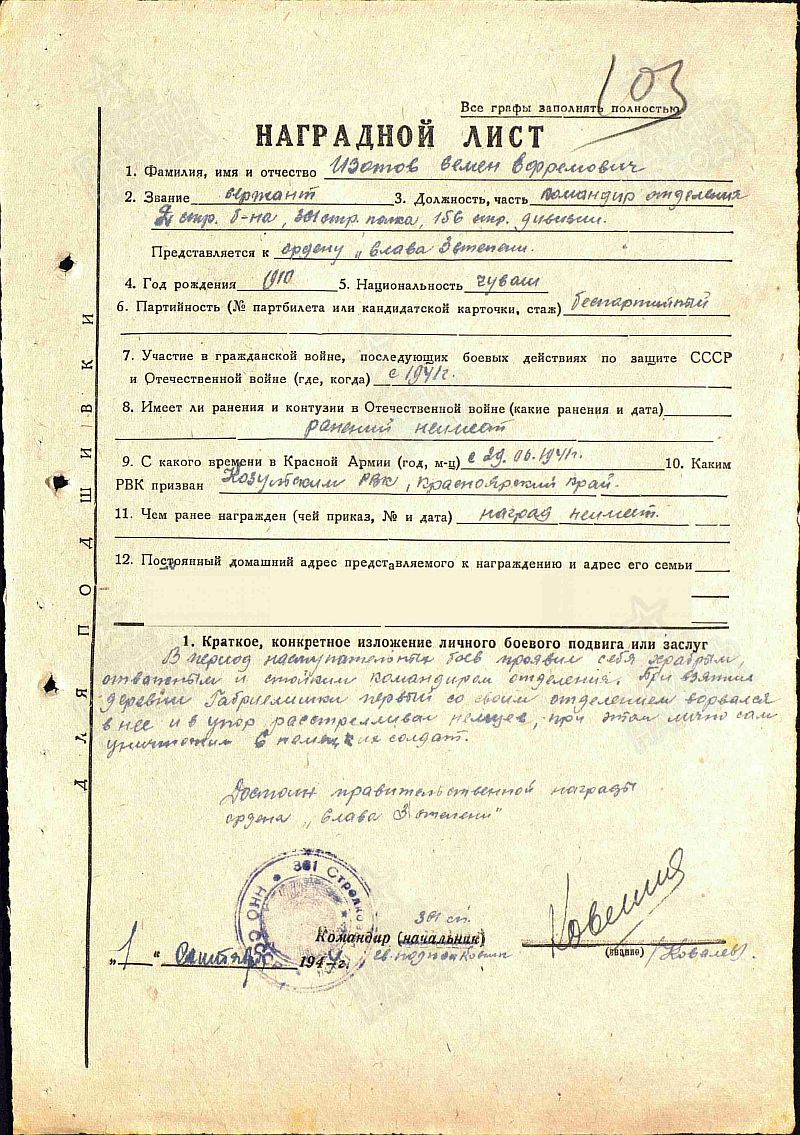 103
Все графы заполнять полностью
НАГРАДНОЙ ЛИСТ
1. Фамилия, имя и отчество Изотов Семен Ефремович
2. Звание сержант 3. Должность, часть командир отделения
2 стр. б-на, 361 стр. полка, 156 стр. дивизии.
Представляется к ордену „Слава 3 степени.
4. Год рождения 1910 5. Национальность чуваш
6. Партийность (№ партбилета или кандидатской карточки, стаж) беспартийный
7. Участие в гражданской войне, последующих боевых действиях по защите СССР
и Отечественной войне (где, когда) с 1941г.
8. Имеет ли ранения и контузии в Отечественной войне (какие ранения и дата)
ранений неимеет
9. С какого времени в Красной Армии (год, м-ц) с 29.06.1941г. 10. Каким
РВК призван Козульским РВК, Красноярский край.
11. Чем ранее награжден (чей приказ, № и дата) наград неимеет.
12. Постоянный домашний адрес представляемого к награждению и адрес его семьи
1. Краткое, конкретное изложение личного боевого подвига или заслуг
В период наступательных боев проявил себя храбрым,
отважным и стойким командиром отделения. При взятии
деревни Габриелишки первый со своим отделением ворвался
в нее и в упор расстреливал немцев, при этом лично сам
уничтожил 6 немецких солдат.
Достоин правительственной награды
ордена „Слава 3 степени"
361 Стрелко
НКО СССР
361 сп.
Командир (начальник)
„1" Сентября 1944г. подполковник
Ковалев
(звание) /Ковалев/.
ДЛЯ ПОДШИВКИ